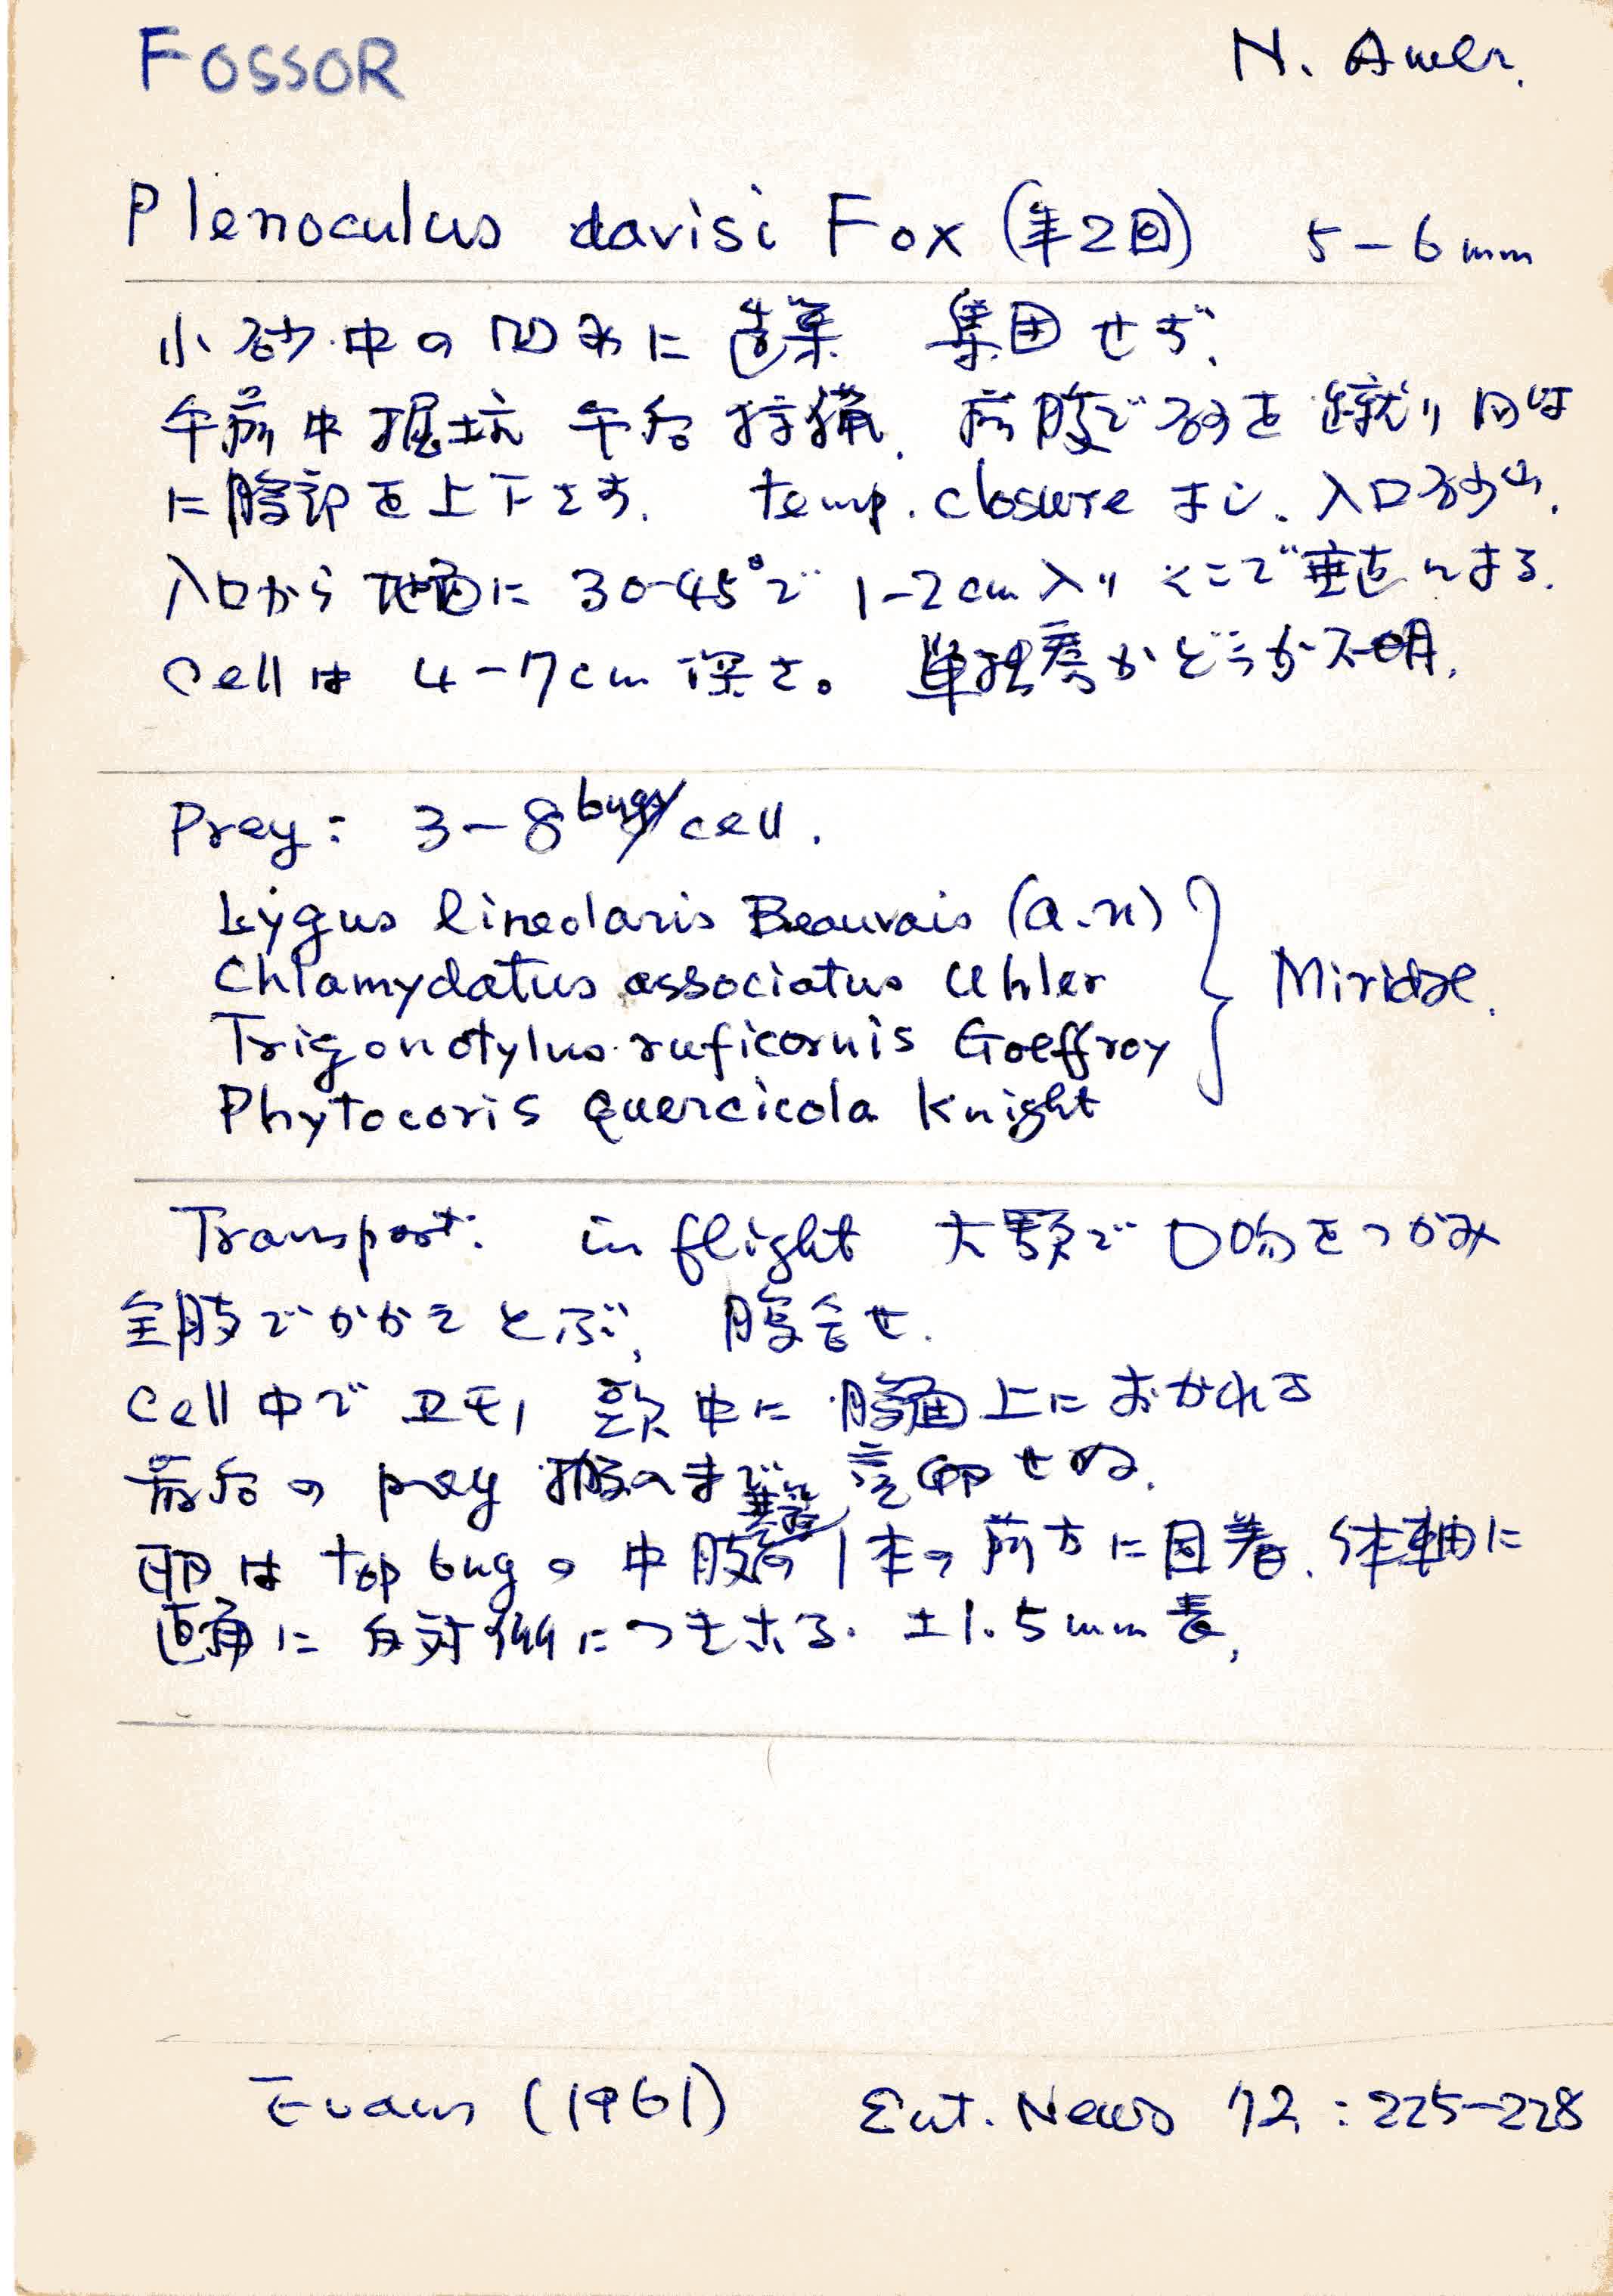 FOSSOR N. Amer.
Plenoculus davisi Fox (年2回) 5-6mm
小砂中の凹みに造巣 集団せず、
午前中掘坑 午后狩猟. 前肢で砂を蹴り同時
に腹部を上下さす. temp. closure なし、入口砂山.
入口から地面に 30-45°で 1-2cm入り そこで垂直になる.
Cellは 4-7cm深さ。 単独房かどうか不明.
Prey: 3-8 bugs/cell.
Lygus lineolaris Beauvais (a.n)
Chlamydatus associatus Uhler
Trigonotylus ruficornis Goeffroy
Phytocoris quercicola Knight
Miridae.
Transport: in flight 大顎で口吻をつかみ
全肢でかかえとぶ, 腹合せ.
Cell中で 頭 中に 腹面上におかれる
最后の prey 搬入まで産卵せぬ.
卵は top bug の中肢基節の1本の前方に固着. 体軸に
直角に反対側につき出る. ±1.5mm長,
Evans (1961) Ent. News 72 : 225-228